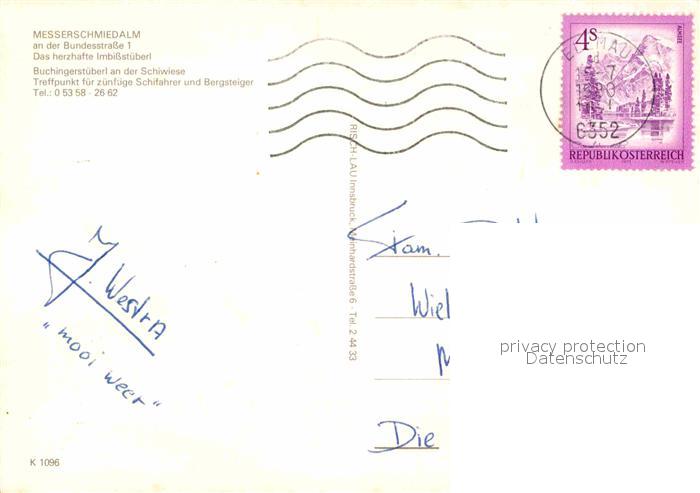 MESSERSCHMIEDALM
an der Bundesstraße 1
Das herzhafte Imbißstüberl
Buchingerstüberl an der Schiwiese
Treffpunkt für zünftige Schifahrer und Bergsteiger
Tel.: 0 53 58 - 26 62
4s
ALMSEE
6352
REPUBLIK ÖSTERREICH
RISCH-LAU Innsbruck, Meinhardstraße 6 - Tel. 2 44 33
Fam.
Wiel
J. Westra
"mooi weer"
privacy protection
Datenschutz
Die
K 1096